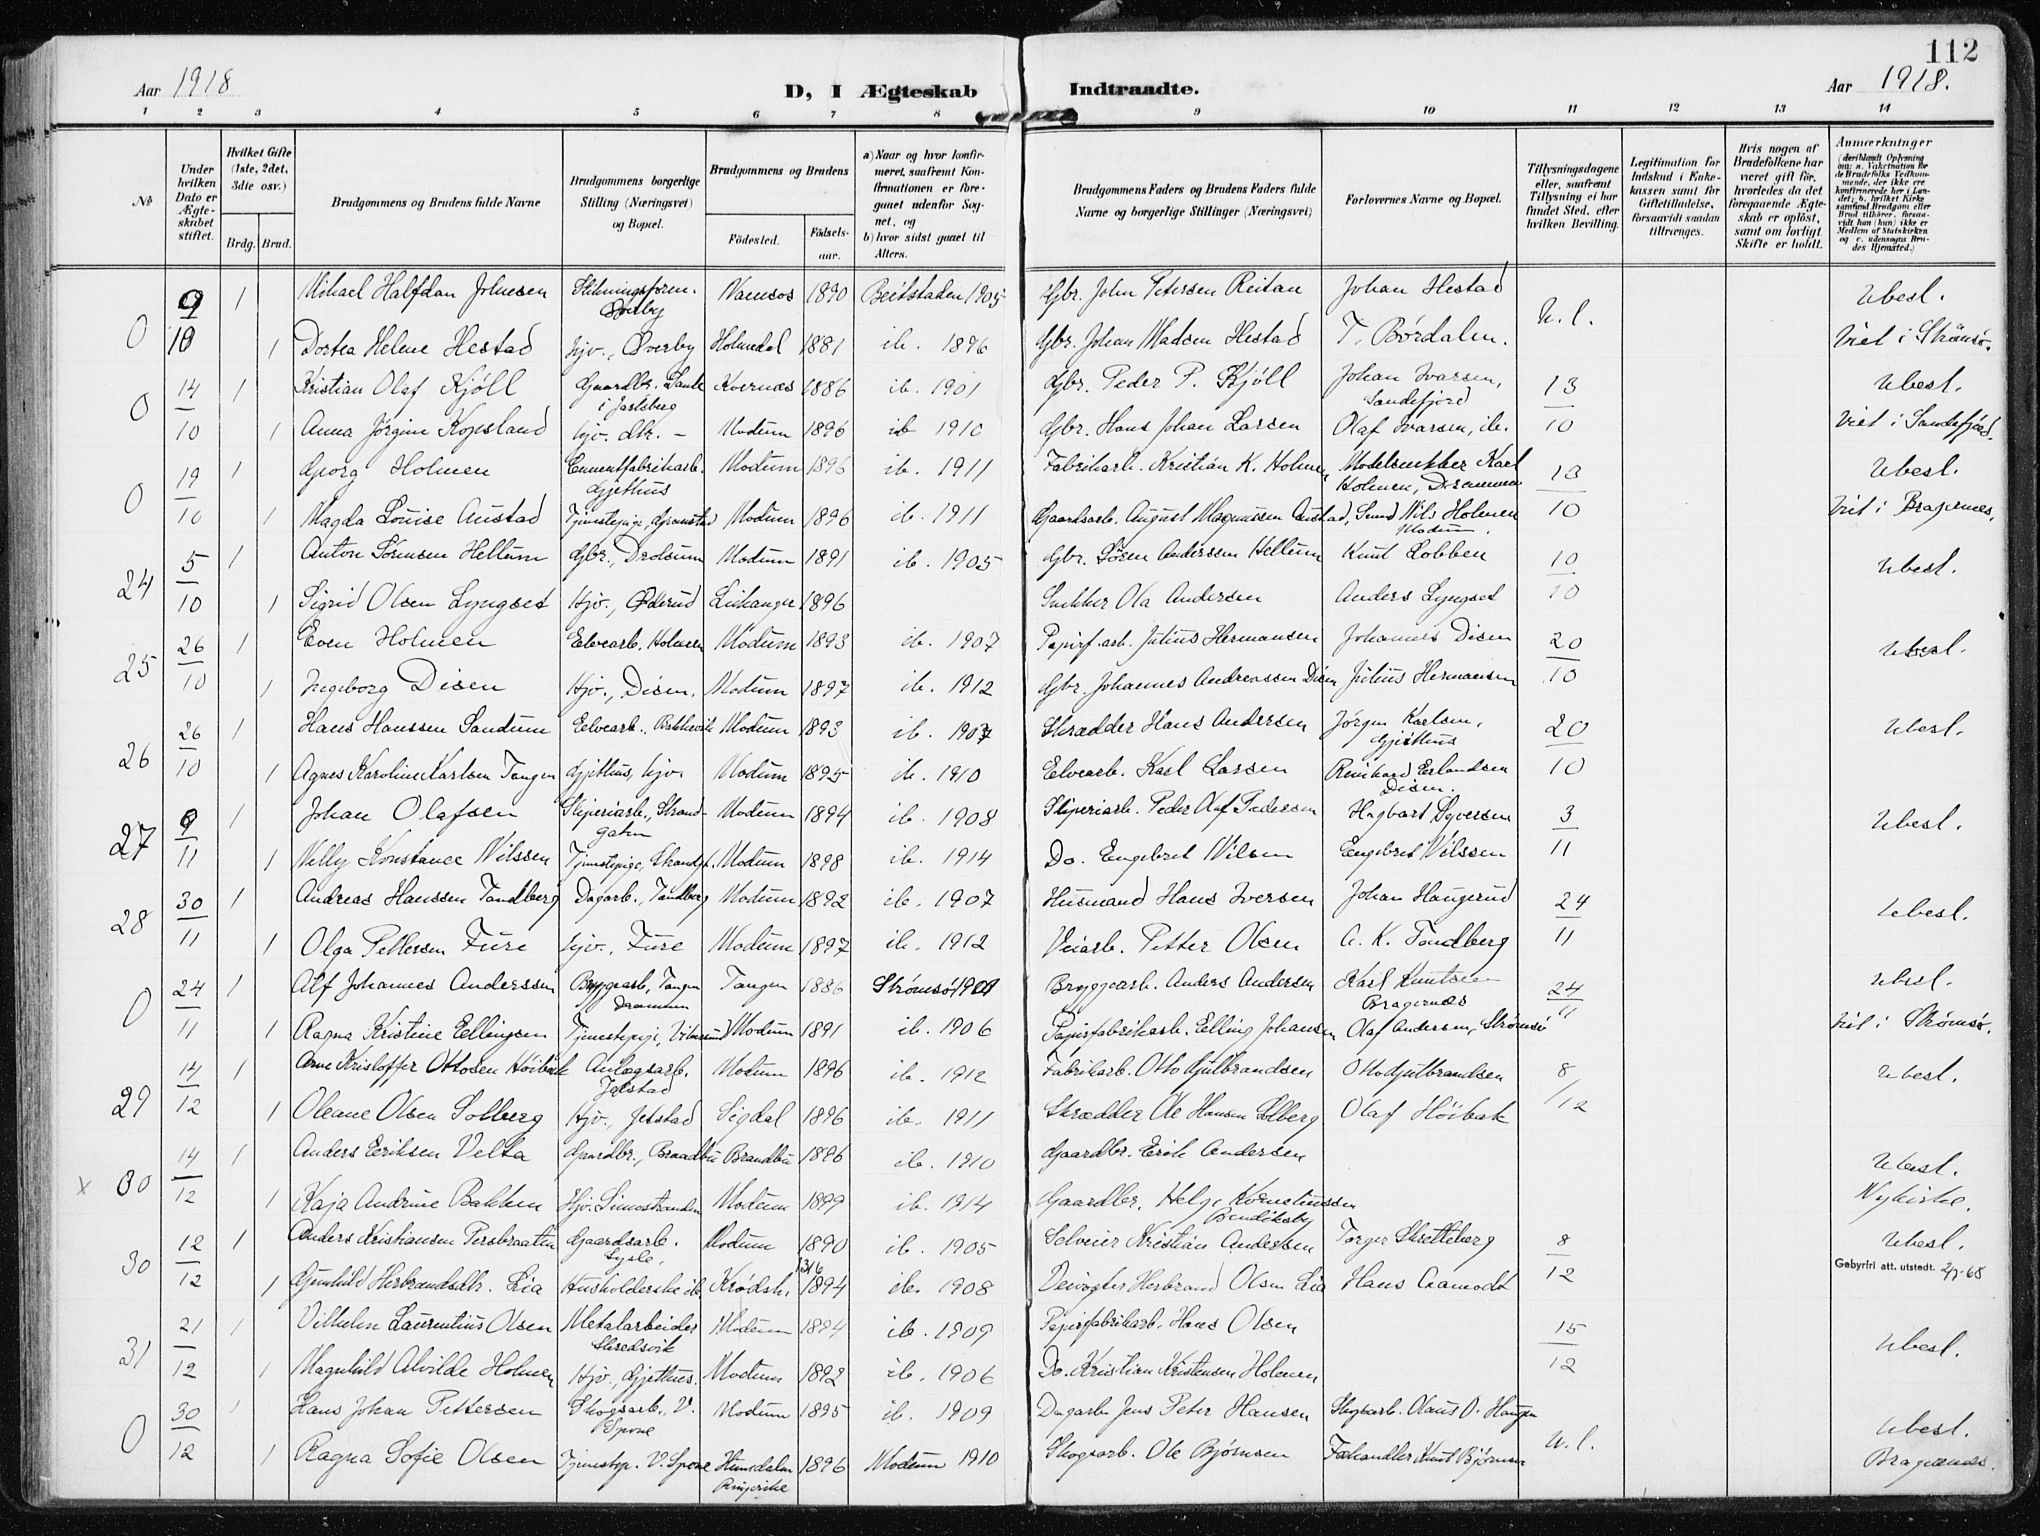 112
Aar 1918
D, I Ægteskab Indtraadte.
Aar 1918.
1 2 3 4 5 6 7 8 9 10 11 12 13 14
No
Under hvilken Dato er Ægteskabet stiftet.
Hvilket Gifte (1ste, 2det, 3dte osv.)
Brdg. Brud.
Brudgommens og Brudens fulde Navne
Brudgommens borgerlige Stilling (Næringsvei) og Bopæl.
Brudgommens og Brudens
Fødested. Fødsels-aar.
a) Naar og hvor konfirmeret, saafremt Konfirmationen er foregaaet udenfor Sognet, og
b) hvor sidst gaaet til Alters.
Brudgommens Faders og Brudens Faders fulde Navne og borgerlige Stillinger (Næringsvei)
Forlovernes Navne og Bopæl.
Tillysningsdagene eller, saafremt Tillysning ei har fundet Sted, efter hvilken Bevilling.
Legitimation for Indskud i Enkekassen samt for Giftetilladelse, forsaavidt saadan tiltrænges.
Hvis nogen af Brudefolkene har været gift før, hvorledes da det foregaaende Ægteskab er opløst, samt om lovligt Skifte er holdt.
Anmærkninger
0 9/10 1 Mihael Halfdan Johnesen Namsos 1890 Beitstaden 1905 Gbr. John Petersen Reitan Johan Hestad U. l. Ubesl.
1 Dortea Helene Hestad Hjv., Øverby Holmedal 1881 ib. 1896 Gbr. Johan Madsen Hestad T. Børdalen. Viet i Strömsö.
0 14/10 1 Kristian Olaf Kjöll Gaardbr. Sande i Jarlsberg Kvernes 1886 ib. 1901 Gbr. Peder P. Kjöll Johan Ivarsen, Sandefjord 13/10 Ubesl.
1 Anna Jörgine Kopsland Hjv. Modum 1896 ib 1910 Gbr. Hans Johan Larsen Olaf Ivarsen, ib. Viet i Sandefjord.
0 19/10 1 Georg Holmen Cementfabrikarb. Gjethus Modum 1896 ib. 1911 Fabrikarb. Kristian K. Holmen Modelsnekker Karl Holmen, Drammen 13/10 Ubesl.
1 Magda Louise Austad Tjenestepige, Modum 1896 ib. 1911 Gaardsarb. August Magnussen Austad, Nils Holmen Modum. Viet i Bragernes.
24 5/10 1 Anton Sørensen Hellum Gbr., Drolsum Modum 1891 ib. 1905 Gbr. Sören Anderssen Hellum Knut Lobben 10/10 Ubesl.
1 Sigrid Olsen Lyngset Hjv., Øderud Leikanger 1896 Snekker Ola Andersen Anders Lyngset
25 26/10 1 Even Holmen Elvearb. Holmen Modum 1893 ib. 1907 Papirf.arb. Julius Hermansen Johannes Disen 20/10 Ubesl.
1 Ingeborg Disen Hjv., Disen. Modum 1897 ib. 1912 Gbr. Johannes Andreassen Disen Julius Hermansen
26 26/10 1 Hans Hanssen Sandum Elvearb., Modum 1893 ib. 1907 Skrædder Hans Andersen Jörgen Karlsen, Gjethus 20/10 Ubesl.
1 Agnes Karoline Karlsen Tangen Gjethus, hjv. Modum 1895 ib. 1910 Elvearb. Karl Larsen Reinhard Erlandsen Disen.
27 9/11 1 Johan Olafsen Sliperiarb., Strandgaten Modum 1894 ib. 1908 Sliperiarb. Peder Olaf Pedersen Hagbart Syversen 3/11 Ubesl.
1 Nelly Konstance Nilssen Tjenestepige, Strandgt. Modum 1898 ib. 1914 Do. Engebret Nilsen Engebret Nilssen
28 30/11 1 Andreas Hanssen Tandberg Dagarb., Tandberg Modum 1892 ib. 1907 Husmand Hans Iversen Johan Haugerud 24/11 Ubesl.
1 Olga Pettersen Fure hjv., Fure Modum 1897 ib. 1912 Veiarb. Petter Olsen A. K. Tandberg
0 24/11 1 Alf Johannes Anderssen Bryggearb., Tangen Drammen Tangen 1886 Strømsø 1901 Bryggearb. Anders Andersen Karl Knutsen Bragernæs 24/11 Ubesl.
1 Ragna Kristine Ellingsen Tjenestepige, Vikersund Modum 1891 ib. 1906 Papirfabrikarb. Elling Johansen Olaf Andersen, Strømsø Viet i Strømsø.
29 14/12 1 Arne Kristoffer Ottosen Höibak Anlægsarb. Jelstad Modum 1896 ib. 1912 Fabrikarb. Otto Gulbrandsen Otto Gulbrandsen 8/12 Ubesl.
1 Oleane Olsen Solberg Hjv., Jelstad Sigdal 1896 ib. 1911 Skrædder Ole Hansen Solberg Olaf Höibak
x 30 14/12 1 Anders Eriksen Velta Gaardbr., Brandbu Brandbu 1886 ib. 1910 Gaardbr. Erik Andersen Ubesl.
1 Kaja Andrine Bakken Hjv. Simostranden Modum 1899 ib. 1914 Gaardbr. Helge Kornetiussen Bendiksby Nykirke.
30 12/12 1 Anders Kristiansen Persbraaten Gaardsarb. Sysle, Modum 1890 ib. 1905 Selveier Kristian Andersen Torger Skretteberg 8/12 Ubesl.
1 Gunhild Herbrandsdtr. Lia Husholderske ib Krødsh. 13/6 1894 ib. 1908 Veivogter Herbrand Olsen Lia Hans Aamodt Gebyrfri att. utstedt.
31 21/12 1 Vilhelm Laurentius Olsen Metalarbeider Skredsvik Modum 1894 ib. 1909 Papirfabrikarb. Hans Olsen 15/12 Ubesl.
1 Magnhild Alvilde Holmen Hjv., Gjethus. Modum 1892 ib. 1906 Do. Kristian Kristensen Holmen
0 30/12 1 Hans Johan Pettersen Skogsarb., V. Spone Modum 1895 ib. 1909 Dagarb. Jens Peter Hansen Skogsarb. Olaus O. Haugen U. l. Ubesl.
1 Ragna Sofie Olsen Tjenestep. V. Spone Ringerike 1896 Modum 1910 Skogsarb. Ole Bjørnsen Forhandler Knut Bjørnsen Bragernes.